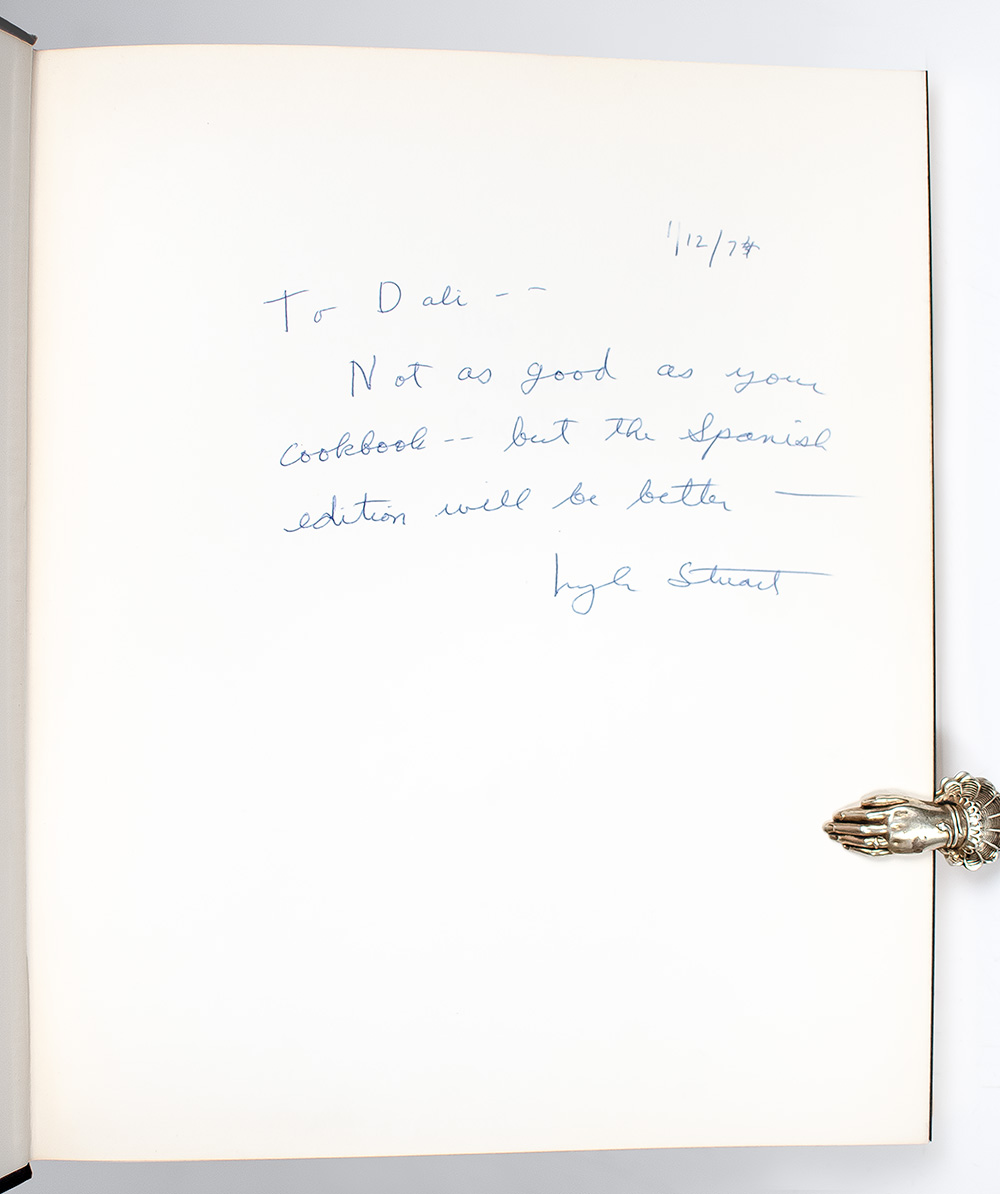 1/12/74
To Dali --
Not as good as your
cookbook -- but the Spanish
edition will be better —
Lyle Stuart